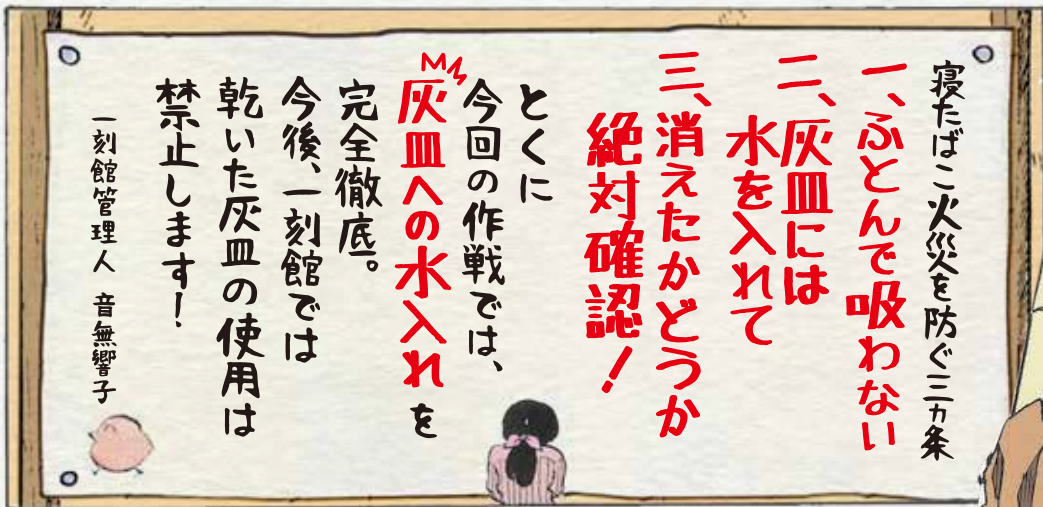 寝たばこ火災を防ぐ三カ条
一、ふとんで吸わない
二、灰皿には
水を入れて
三、消えたかどうか
絶対確認!
とくに
今回の作戦では、
灰皿への水入れを
完全徹底。
今後、一刻館では
乾いた灰皿の使用は
禁止します!
一刻館管理人 音無響子